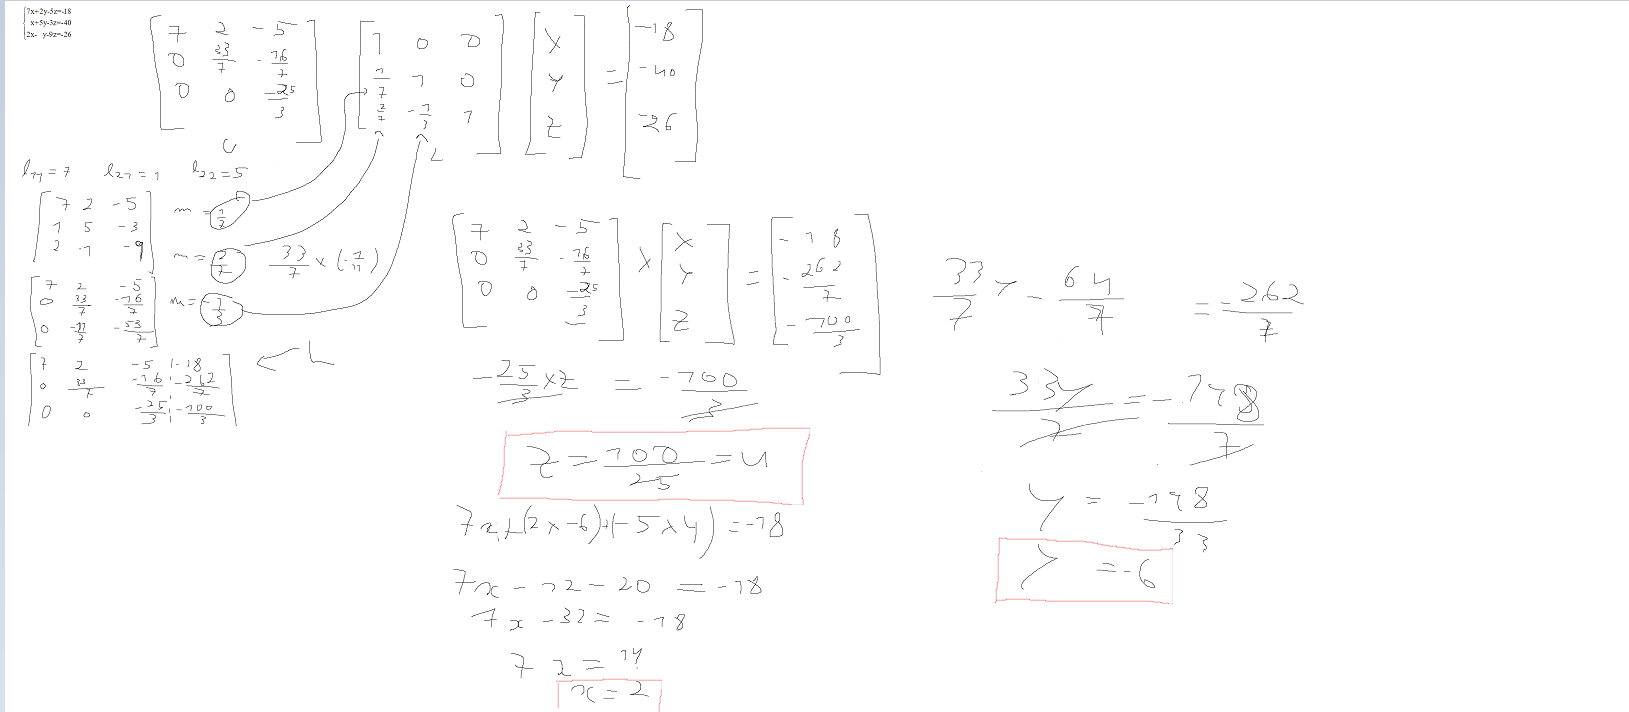 7x+2y-5z=-18
x+5y-3z=-40
2x- y-9z=-26
[7 2 -5; 0 33/7 -16/7; 0 0 -25/3] [1 0 0; 1/7 1 0; 2/7 -1/3 1] [X; Y; Z] = [-18; -40; -26]
U L
l11=7 l21=1 l22=5
[7 2 -5; 1 5 -3; 2 -1 -9]
m = 1/7
m = 2/7 33/7 × (-7/11)
[7 2 -5; 0 33/7 -16/7; 0 -11/7 -53/7]
m = -1/3
[7 2 -5 | -18; 0 33/7 -16/7 | -262/7; 0 0 -25/3 | -100/3]
[7 2 -5; 0 33/7 -16/7; 0 0 -25/3] × [X; Y; Z] = [-18; -262/7; -100/3]
-25/3 × z = -100/3
Z = 100/25 = 4
7x + (2 × -6) + (-5 × 4) = -18
7x - 12 - 20 = -18
7x - 32 = -18
7x = 14
x = 2
33/7 Y - 64/7 = -262/7
33Y/7 = -198/7
Y = -198/33
Y = -6